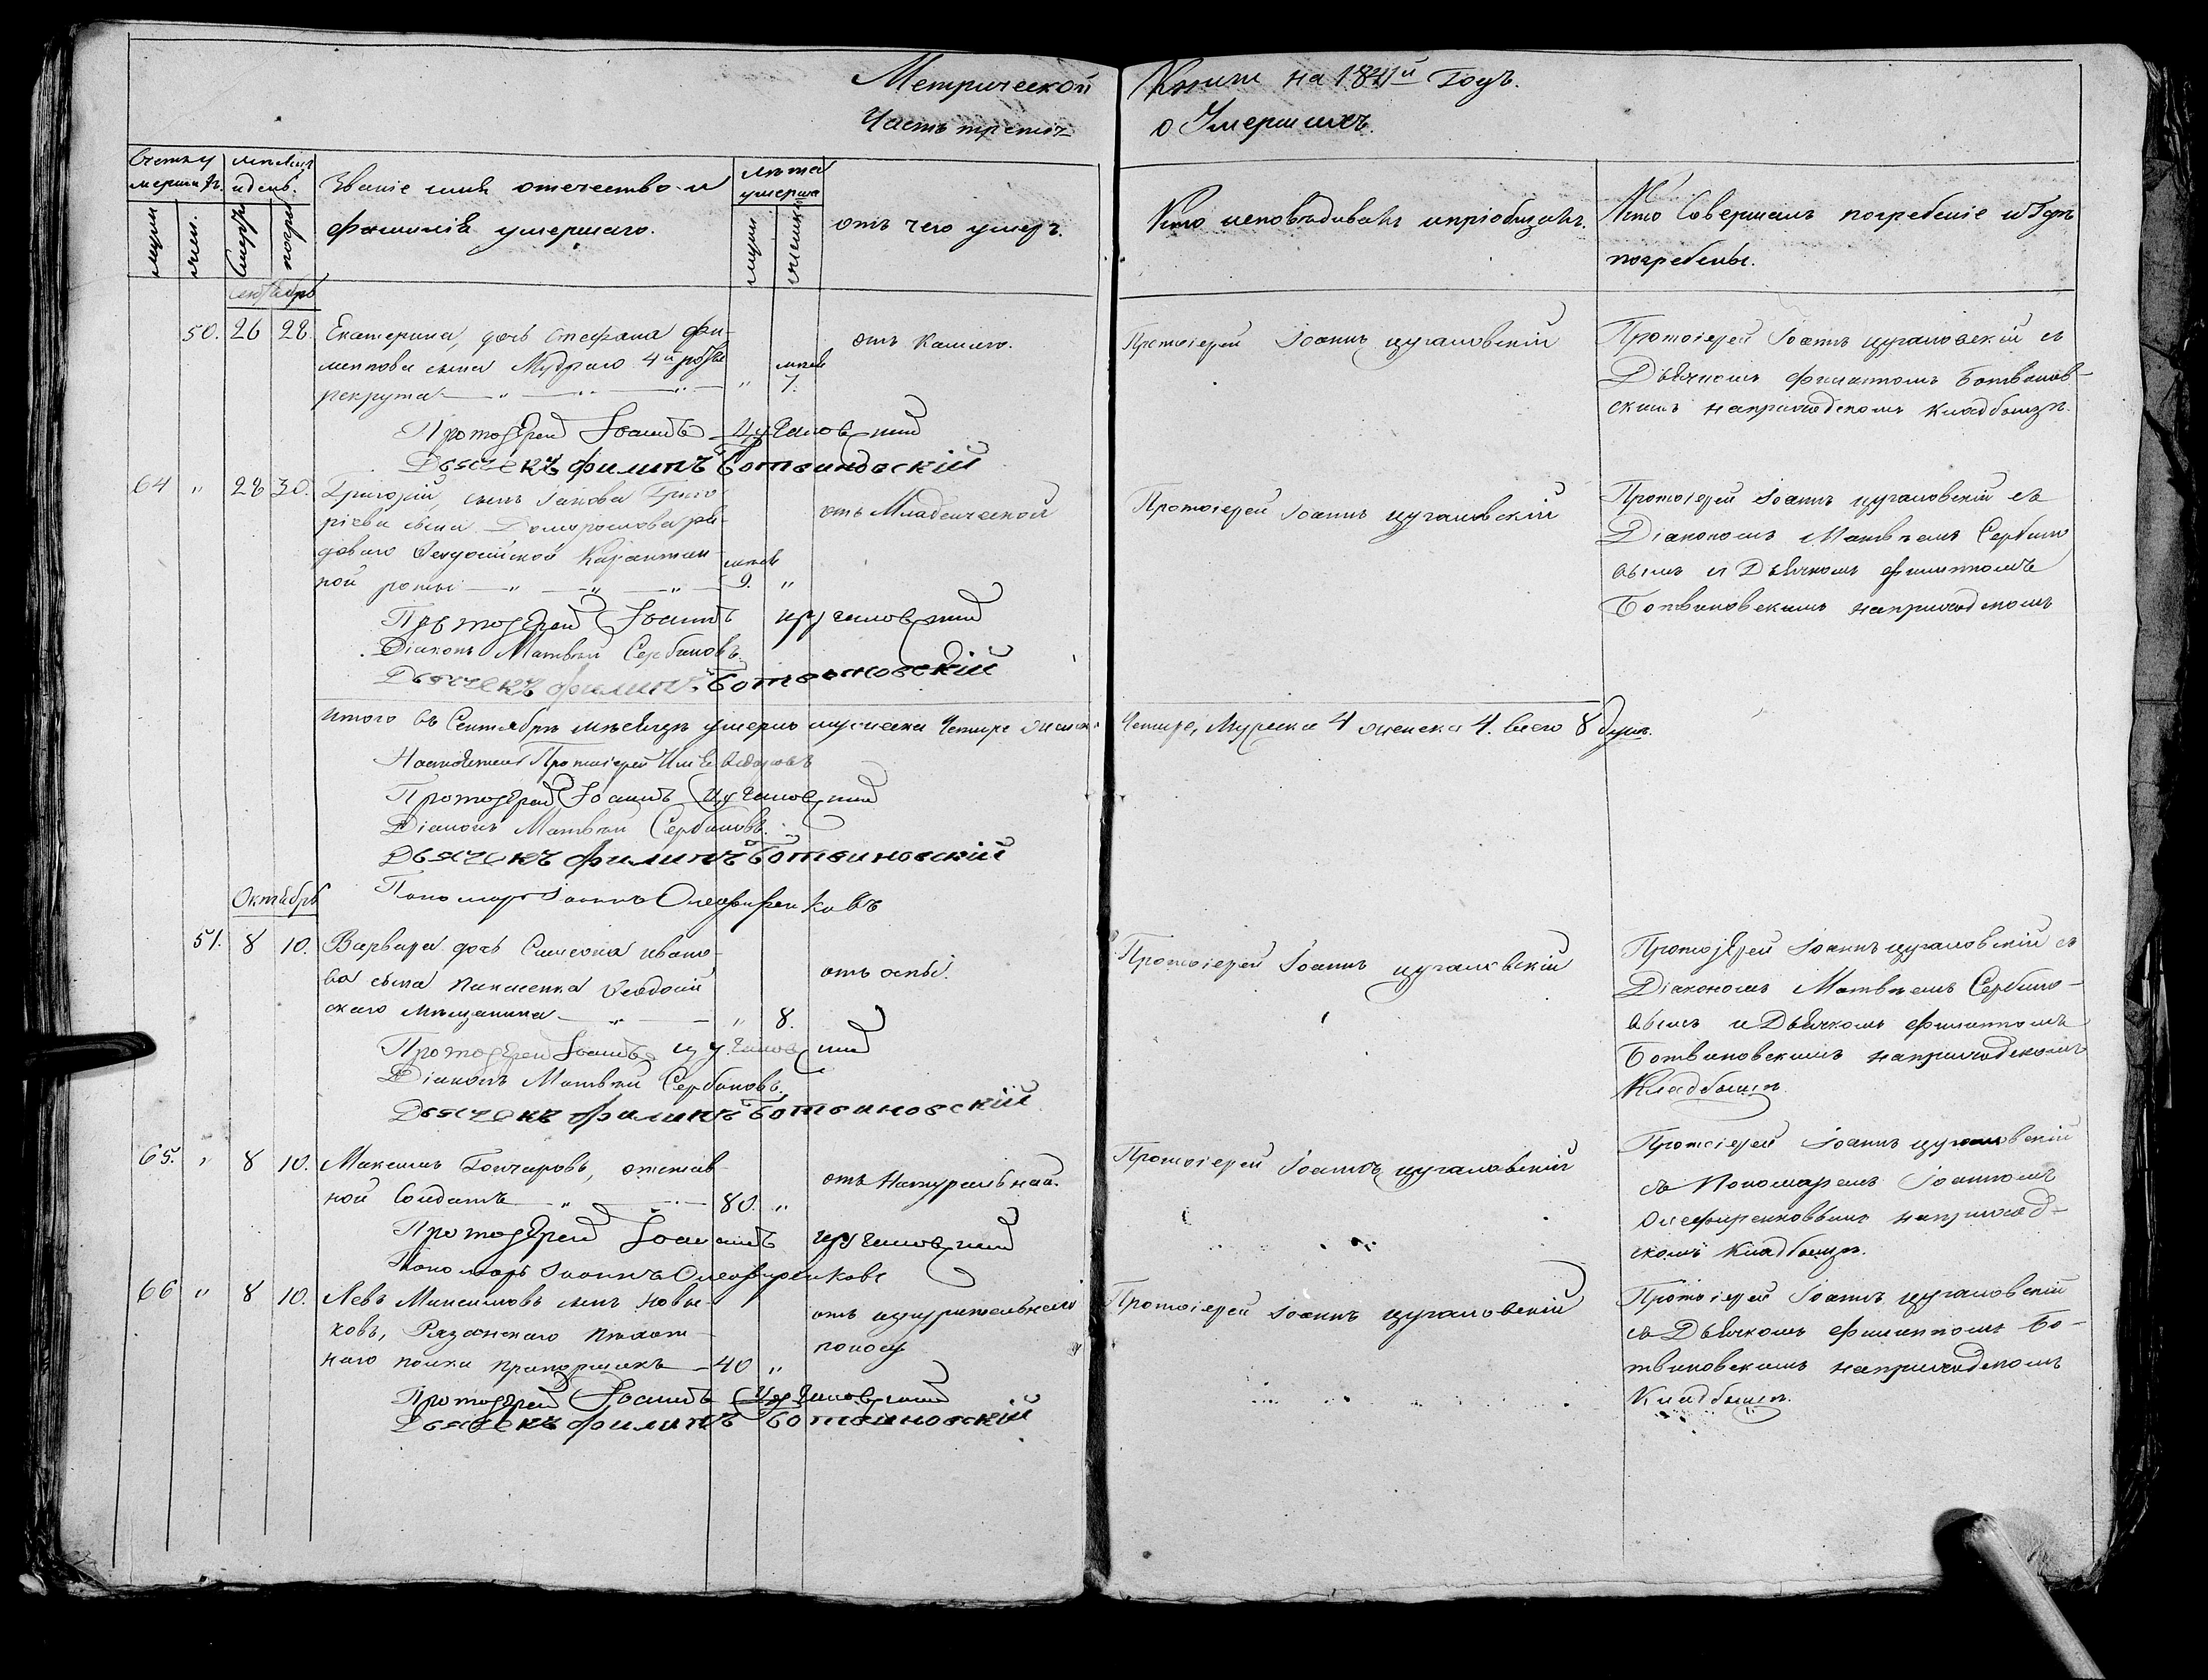 Метрической Книги на 1841й Годъ.
Часть третья о Умершихъ.
Счетъ умершихъ.
мѣсяцъ и день.
Званіе имя отечество и фамилія умершаго.
лѣта умерша
отъ чего умеръ.
Кто исповѣдивалъ и пріобщалъ.
Кто Совершалъ погребеніе и Гдѣ погребены.
сентябрь
50. 26 28.
Екатерина, дочь Стефана Фи-
липпова сына Мудраго 4й роты
рекрута
мѣсяц
7.
отъ Кашлю.
Протоіерей Іоаннъ Цугаловскій
Протоіерей Іоаннъ Цугаловскій съ
Дьячкомъ Филиппомъ Ботвинов-
скимъ на приходскомъ Кладбищѣ.
Протоіерей Іоаннъ Цугаловскій
Дьячекъ Филипъ Ботвиновскій
64 " 28 30.
Григорій, сынъ Іакова Григо-
ріева сына Доморослова ря-
доваго Ѳеодосійской Карантин-
ной роты
9. "
отъ Младенческой
Протоіерей Іоаннъ Цугаловскій
Протоіерей Іоаннъ Цугаловскій съ
Діакономъ Матвѣемъ Сербино
вымъ и Дьячкомъ Филиппомъ
Ботвиновскимъ на приходскомъ
Протоіерей Іоаннъ Цугаловскій
Діаконъ Матвѣй Сербиновъ.
Дьячекъ Филипъ Ботвиновскій
Итого въ Сентябрѣ мѣсяцѣ умерло мужеска Четыре женска Четыре, Мужеска 4 женска 4. всего 8 душъ.
Протоіерей
Протоіерей Іоаннъ Цугаловскій
Діаконъ Матвѣй Сербиновъ.
Дьячекъ Филипъ Ботвиновскій
Пономарь Іоаннъ Олефиренковъ
Октябрь
51. 8 10.
Варвара дочь Симеона Ивано-
ва сына Ѳеодосій
скаго мѣщанина " 8.
отъ оспы.
Протоіерей Іоаннъ Цугаловскій
Протоіерей Іоаннъ Цугаловскій съ
Діакономъ Матвѣемъ Сербино-
вымъ и Дьячкомъ Филиппомъ
Ботвиновскимъ на приходскомъ
Кладбищѣ.
Протоіерей Іоаннъ Цугаловскій
Діаконъ Матвѣй Сербиновъ.
Дьячекъ Филипъ Ботвиновскій
65. " 8 10.
Максимъ Гончаровъ, отстав
ной Солдатъ 80. "
отъ Натуральной.
Протоіерей Іоаннъ Цугаловскій
Протоіерей Іоаннъ Цугаловскій
съ Пономаремъ Іоанномъ
Олефиренковымъ на приход-
скомъ Кладбищѣ.
Протоіерей Іоаннъ Цугаловскій
Пономарь Іоаннъ Олефиренковъ
66 " 8 10.
Левъ Максимовъ сынъ Новы-
ковъ, Рязанскаго Пѣхот-
наго полка прапорщикъ 40 "
отъ изнурительнаго
поносу
Протоіерей Іоаннъ Цугаловскій
Протоіерей Іоаннъ Цугаловскій
съ Дьячкомъ Филиппомъ Бо-
твиновскимъ на приходскомъ
Кладбищѣ.
Протоіерей Іоаннъ Цугаловскій
Дьячекъ Филипъ Ботвиновскій